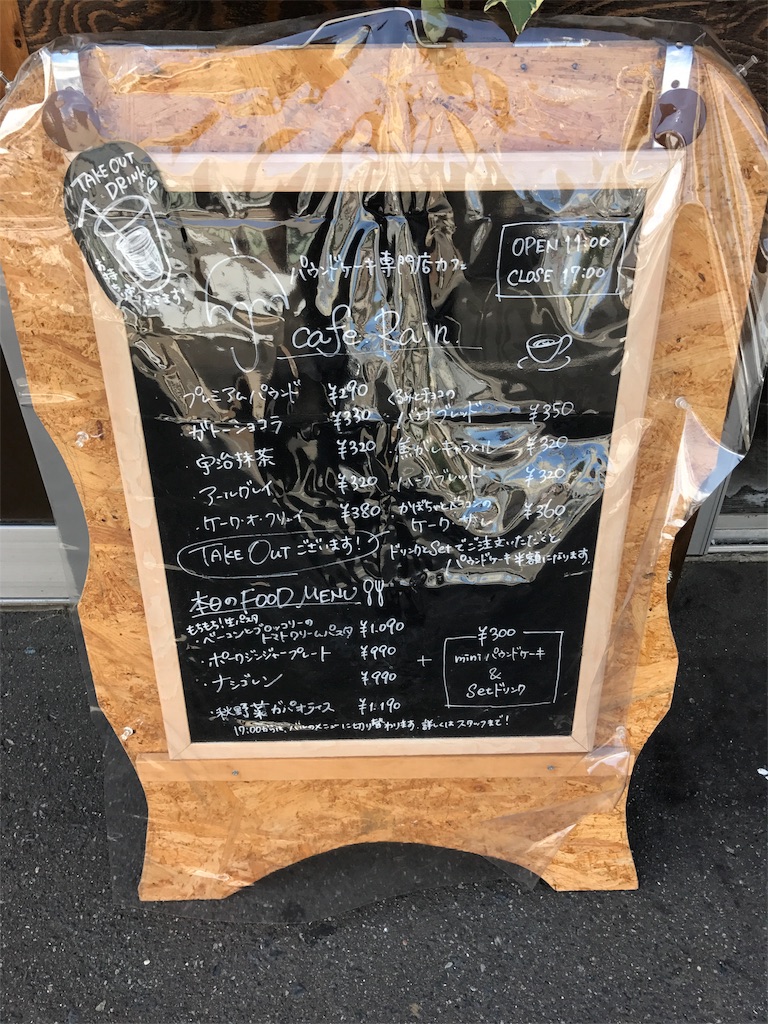 TAKE OUT
DRINK♡
パウンドケーキ専門店カフェ
OPEN 11:00
CLOSE 17:00
cafe Rain.
プレミアムパウンド ¥290
ガトーショコラ ¥330
・宇治抹茶 ¥320
・アールグレイ ¥320
・ケーク・オ・フリュイ ¥380
くるみとチョコの
バナナブレッド ¥350
焦がしキャラメル ¥320
¥320
かぼちゃとベーコンの
ケークサレ ¥360
TAKE OUT ございます!
ドリンクとSetでご注文いただくと
パウンドケーキ半額になります。
本日のFOOD MENU
もちもち!生パスタ
・ベーコンとブロッコリーの
トマトクリームパスタ ¥1.090
・ポークジンジャープレート ¥990
・ナシゴレン ¥990
・秋野菜ガパオライス ¥1.190
+
¥300
mini パウンドケーキ
&
Setドリンク
17:00からは、バルのメニューに切り替わります。詳しくはスタッフまで!